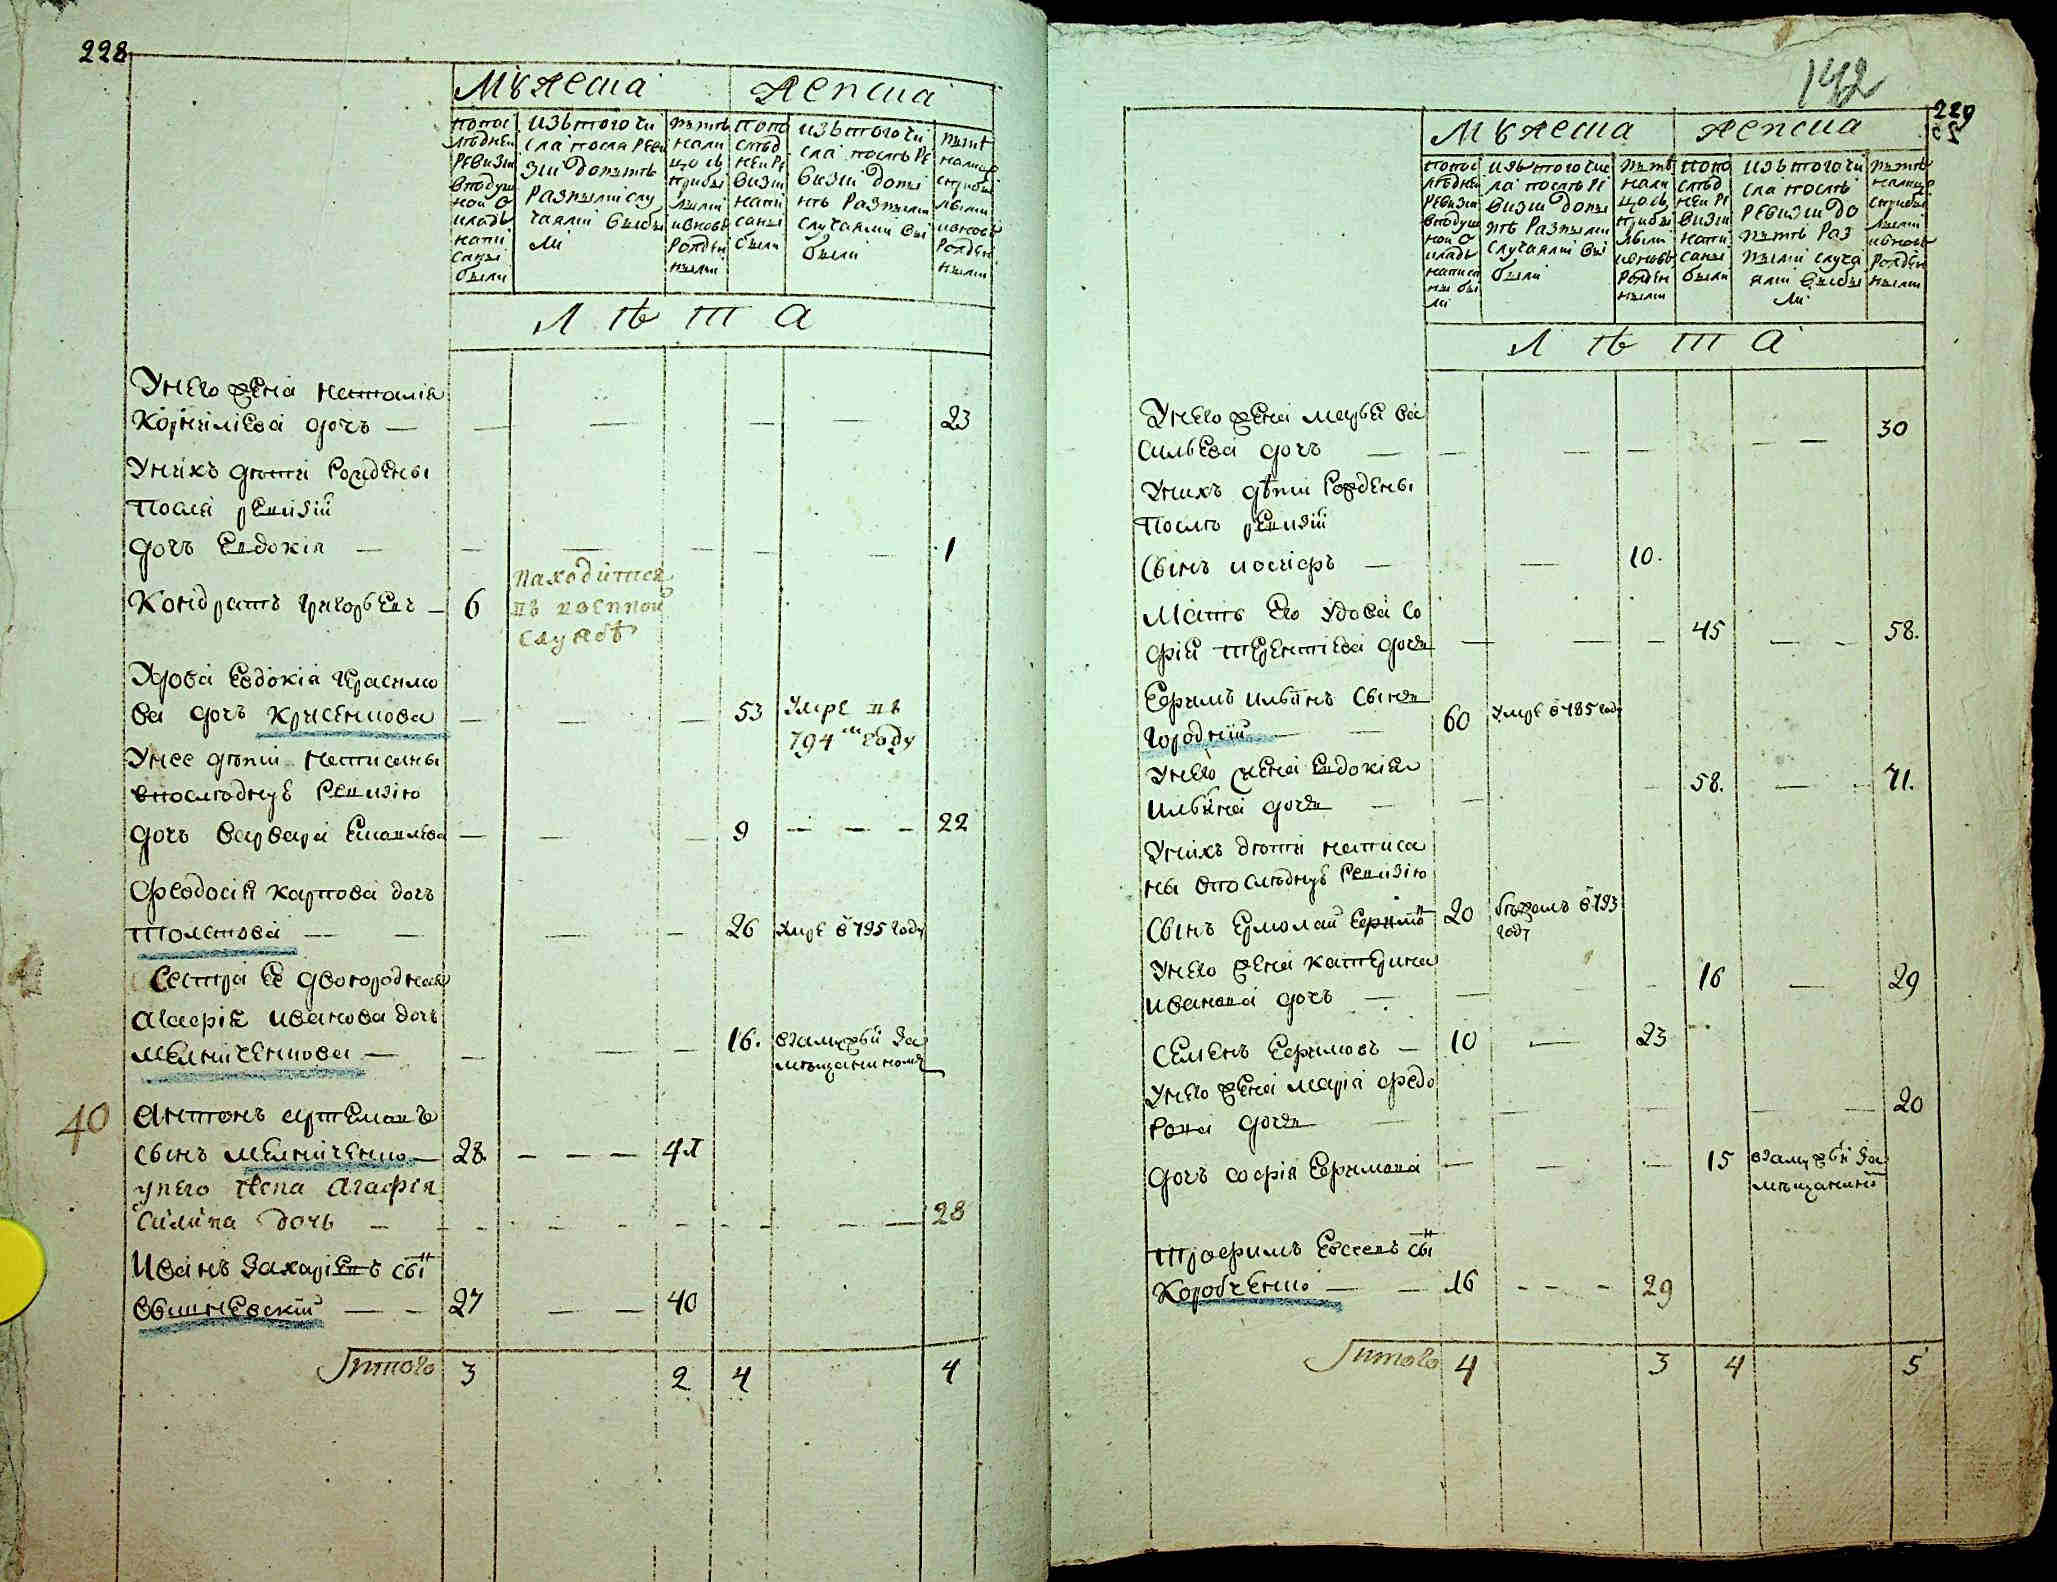 228
Мужеска Женска
попос
лѣдней
ревизіи
вподуш
ной о
кладъ
напи
саны
были
изътогочи
сла после реви
зіи допынѣ
разными слу
чаями выбы
ли
нынѣ
нали
цо съ
прибы
лыми
ивновь
рожден
ными
попо
слѣд
ней ре
визіи
напи
саны
были
изътогочи
сла послѣ ре
визіи доны
нѣ разными
случаями вы
были
нынѣ
налице
сприбы
лыми
ивновь
рожден
ными
Л ѣ т а
Унего жена наталія
Корнилиева дочъ — — — — — 23
Унихъ дѣти рождены
После ревизіи
дочъ Евдокія — — — — — — 1
Кондратъ григорьевъ — 6 находится
въ военной
службѣ
Удова Евдокія Герасимо
ва дочъ Крисенкова — — — 53 умре въ
794м году
Унее дѣти написаны
впослѣднуе ревизію
дочъ варвара — — — 9 — — — 22
Феодосія карпова дочъ
— — — — 26 умре в 795 году
Сестра ее двоюродная
Агафія иванова дочъ
Мелниченкова — — — — 16. взамужъи за
мѣщанином
40 Антонъ артемовъ
сынъ мелниченко — 28. — — — 41
унего жена Агафія
Силина дочъ — — — — — — — 28
Иванъ Захаріевъ сын
Вишневскій — — 27 — — 40
Итого 3 2 4 4
142
229
Мужеска Женска
попос
лѣдней
ревизіи
вподуш
ной о
кладъ
написа
ны бы
ли
изътогочис
ла послѣ ре
визіи доны
нѣ разными
случаями вы
были
нынѣ
нали
цо съ
прибы
лыми
ивновь
рожден
ными
попо
слѣд
ней ре
визіи
напи
саны
были
изътогочи
сла послѣ
ревизіи до
нынѣ раз
ными случа
ями выбы
ли
нынѣ
налице
сприбы
лыми
ивновь
рожден
ными
Л ѣ т а
Унего жена марья ва
сильева дочъ — — — — — — 30
Унихъ дѣти рождены
послѣ ревизіи
Сынъ иосифъ — — 10.
Мать его удова со
фія терентіева дочь — — — 45 — — 58.
Ефимъ ильинъ сынъ
Городній — — 60 умре в 785 году
Унего жена Евдокія
ильина дочь — — — 58. — — 71.
Унихъ дѣти написа
ны впослѣднуе ревизію
Сынъ Ермолай Ефимов 20 бѣжалъ в 793
году
Унего жена катерина
иванова дочъ — — — 16 — 29
Семенъ Ефимовъ — 10 — 23
Унего жена марія федо
рова дочь — — — — — — 20
Дочъ софія Ефимова — — — 15 взамужъи за
мѣщанином
Трофимъ Евсеевъ сын
Коробченко — — 16 - - - 29
Итого 4 3 4 5